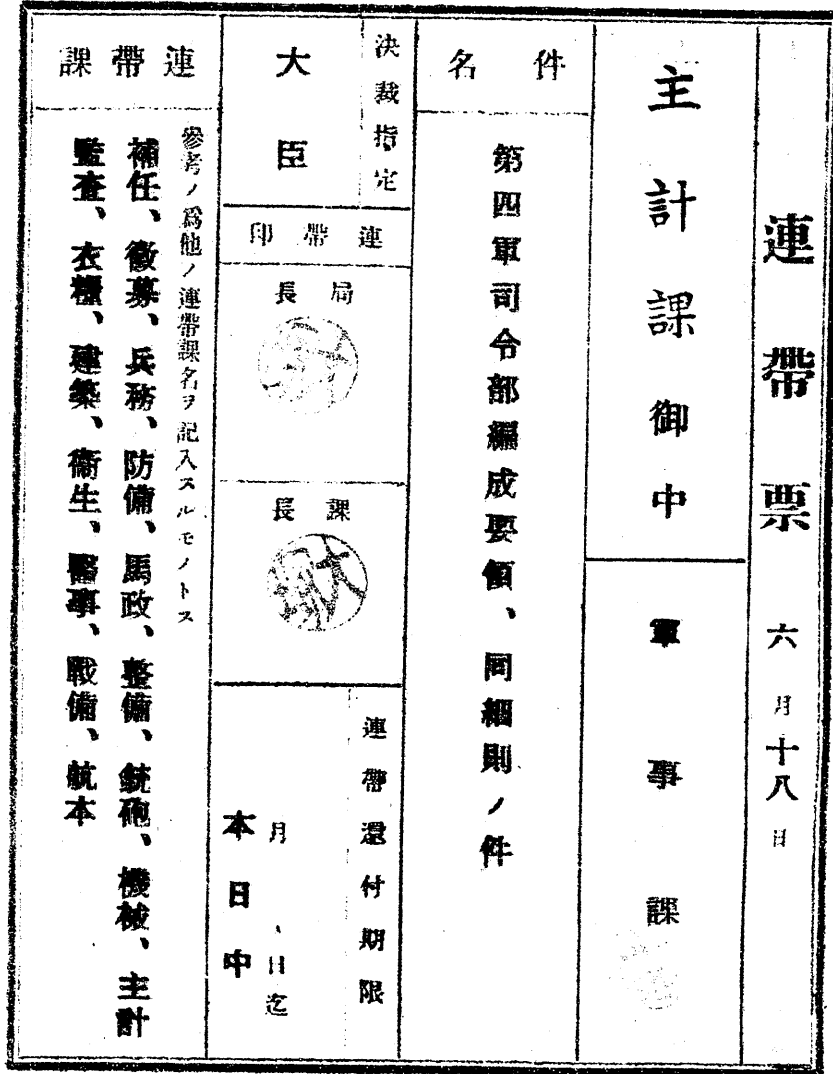 連帶票 六月十八日
主計課御中
軍事課
件名
第四軍司令部編成要領、同細則ノ件
決裁指定
大臣
連帶印
局長
課長
連帶還付期限
月、日迄
本日中
連帶課
參考ノ爲他ノ連帶課名ヲ記入スルモノトス
補任、徵募、兵務、防備、馬政、整備、銃砲、機械、主計
監査、衣糧、建築、衞生、醫事、戰備、航本